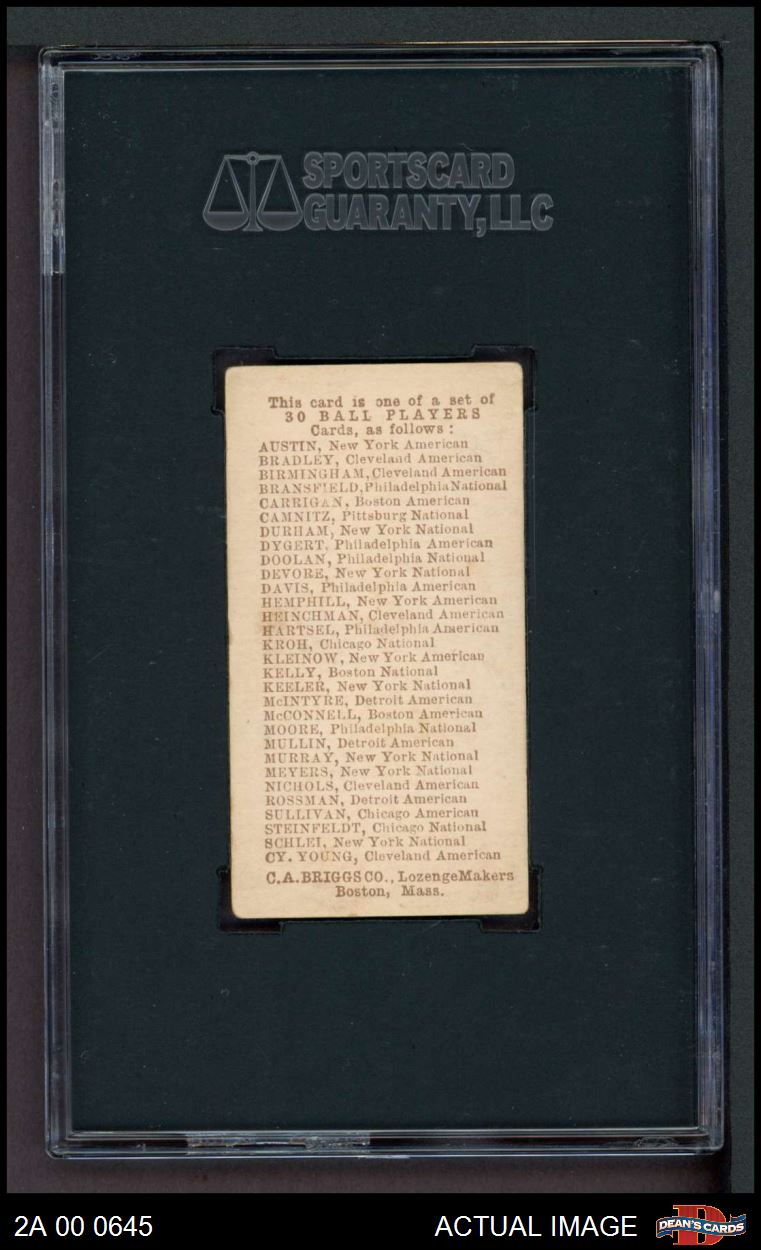 SPORTSCARD
GUARANTY, LLC
This card is one of a set of
30 BALL PLAYERS
Cards, as follows :
AUSTIN, New York American
BRADLEY, Cleveland American
BIRMINGHAM, Cleveland American
BRANSFIELD, Philadelphia National
CARRIGAN, Boston American
CAMNITZ, Pittsburg National
DURHAM, New York National
DYGERT, Philadelphia American
DOOLAN, Philadelphia National
DEVORE, New York National
DAVIS, Philadelphia American
HEMPHILL, New York American
HEINCHMAN, Cleveland American
HARTSEL, Philadelphia American
KROH, Chicago National
KLEINOW, New York American
KELLY, Boston National
KEELER, New York National
McINTYRE, Detroit American
McCONNELL, Boston American
MOORE, Philadelphia National
MULLIN, Detroit American
MURRAY, New York National
MEYERS, New York National
NICHOLS, Cleveland American
ROSSMAN, Detroit American
SULLIVAN, Chicago American
STEINFELDT, Chicago National
SCHLEI, New York National
CY. YOUNG, Cleveland American
C. A. BRIGGS CO., Lozenge Makers
Boston, Mass.
2A 00 0645
ACTUAL IMAGE
D
DEAN'S CARDS